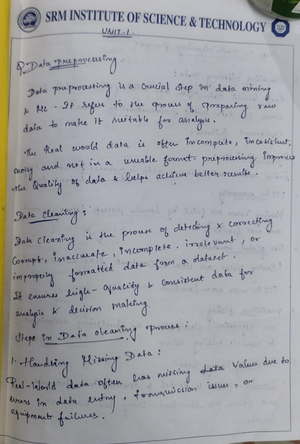 SRM INSTITUTE OF SCIENCE & TECHNOLOGY
UNIT-1
Data preprocessing.
Data preprocessing is a crucial step in data mining
& ML. It refers to the process of preparing raw
data to make it suitable for analysis.
The Real world data is often incomplete, inconsistent,
noisy and not in a usable format. preprocessing improves
the Quality of data & helps achieve better results.
Data Cleaning:
Data cleaning is the process of detecting & correcting
corrupt, inaccurate, incomplete, irrelevant, or
improperly formatted data from a dataset.
It ensures high-quality & consistent data for
analysis & decision making.
Steps in Data cleaning process:
1. Handling Missing Data:
Real-World data often has missing data values due to
errors in data entry, transmission issues, or
equipment failures.